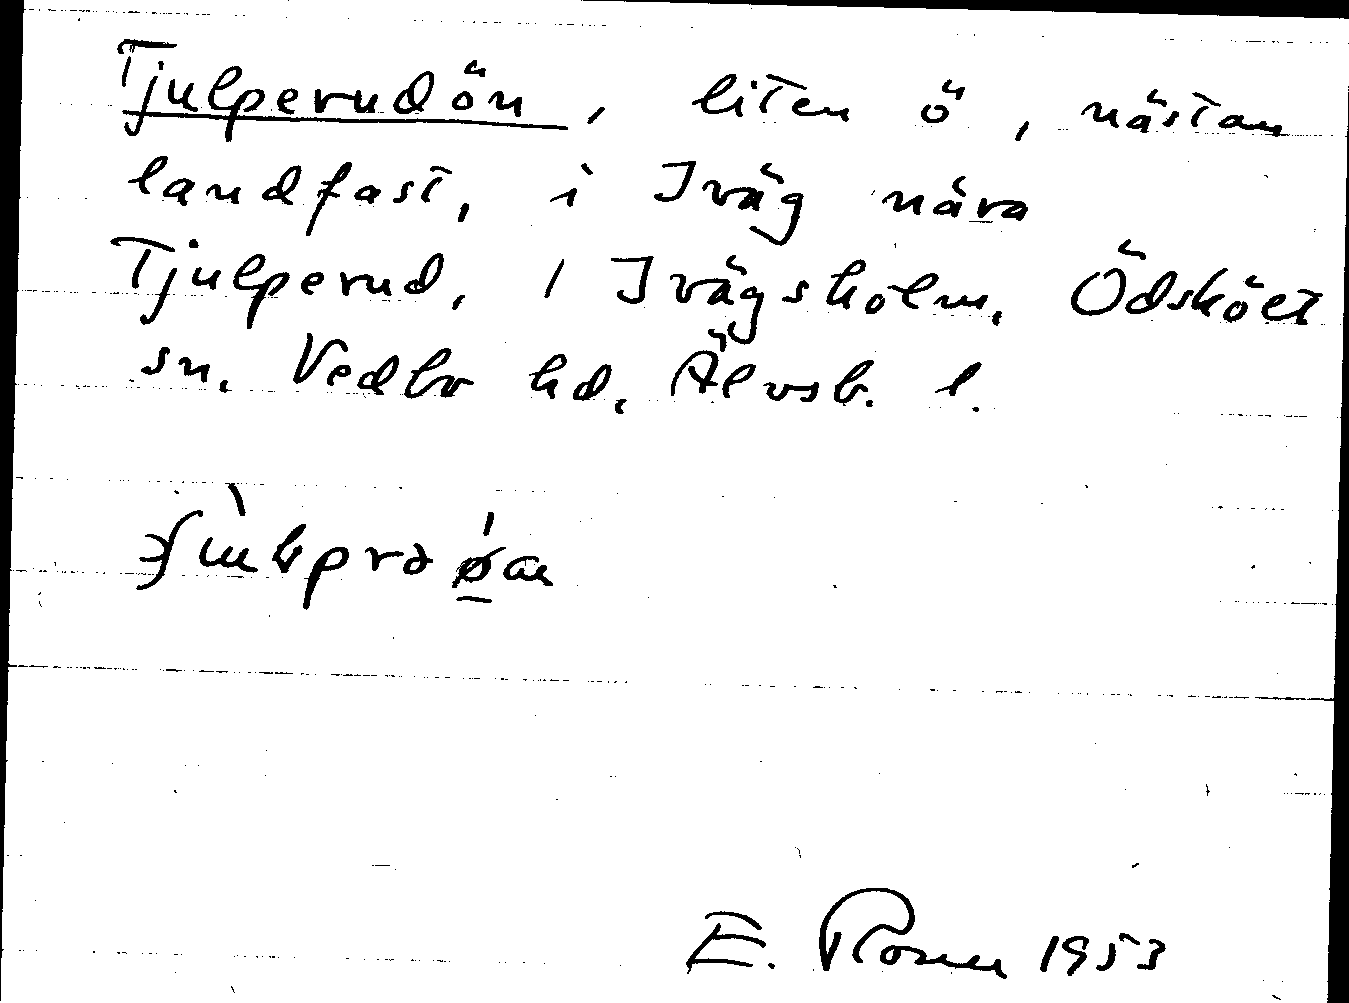 Tjulperudön, liten ö, nästan
landfast, i Iväg nära
Tjulperud, 1 Ivägsholm, Ödskölt
sn. Vedbo hd, Älvsb. l.
E. Rosell 1953